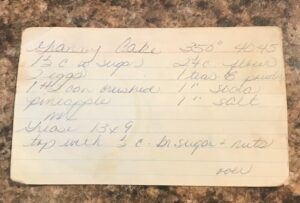 Granny Cake 350° 40-45
1½ c sugar 2¼ c flour
2 eggs 1 teas B powd
1 #2 can crushed 1 " soda
pineapple 1 " salt
mix
Grease 13x9
top with ½ c. Br sugar + nuts
over